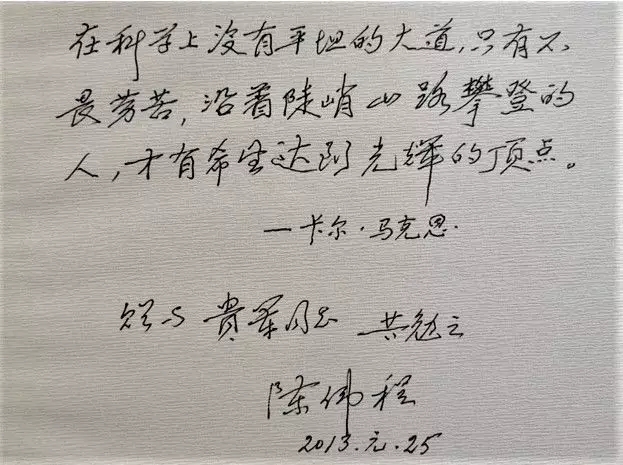 在科学上没有平坦的大道,只有不
畏劳苦,沿着陡峭山路攀登的
人,才有希望达到光辉的顶点。
—卡尔·马克思.
贵军同志 共勉之
陈伟程
2013.元.25